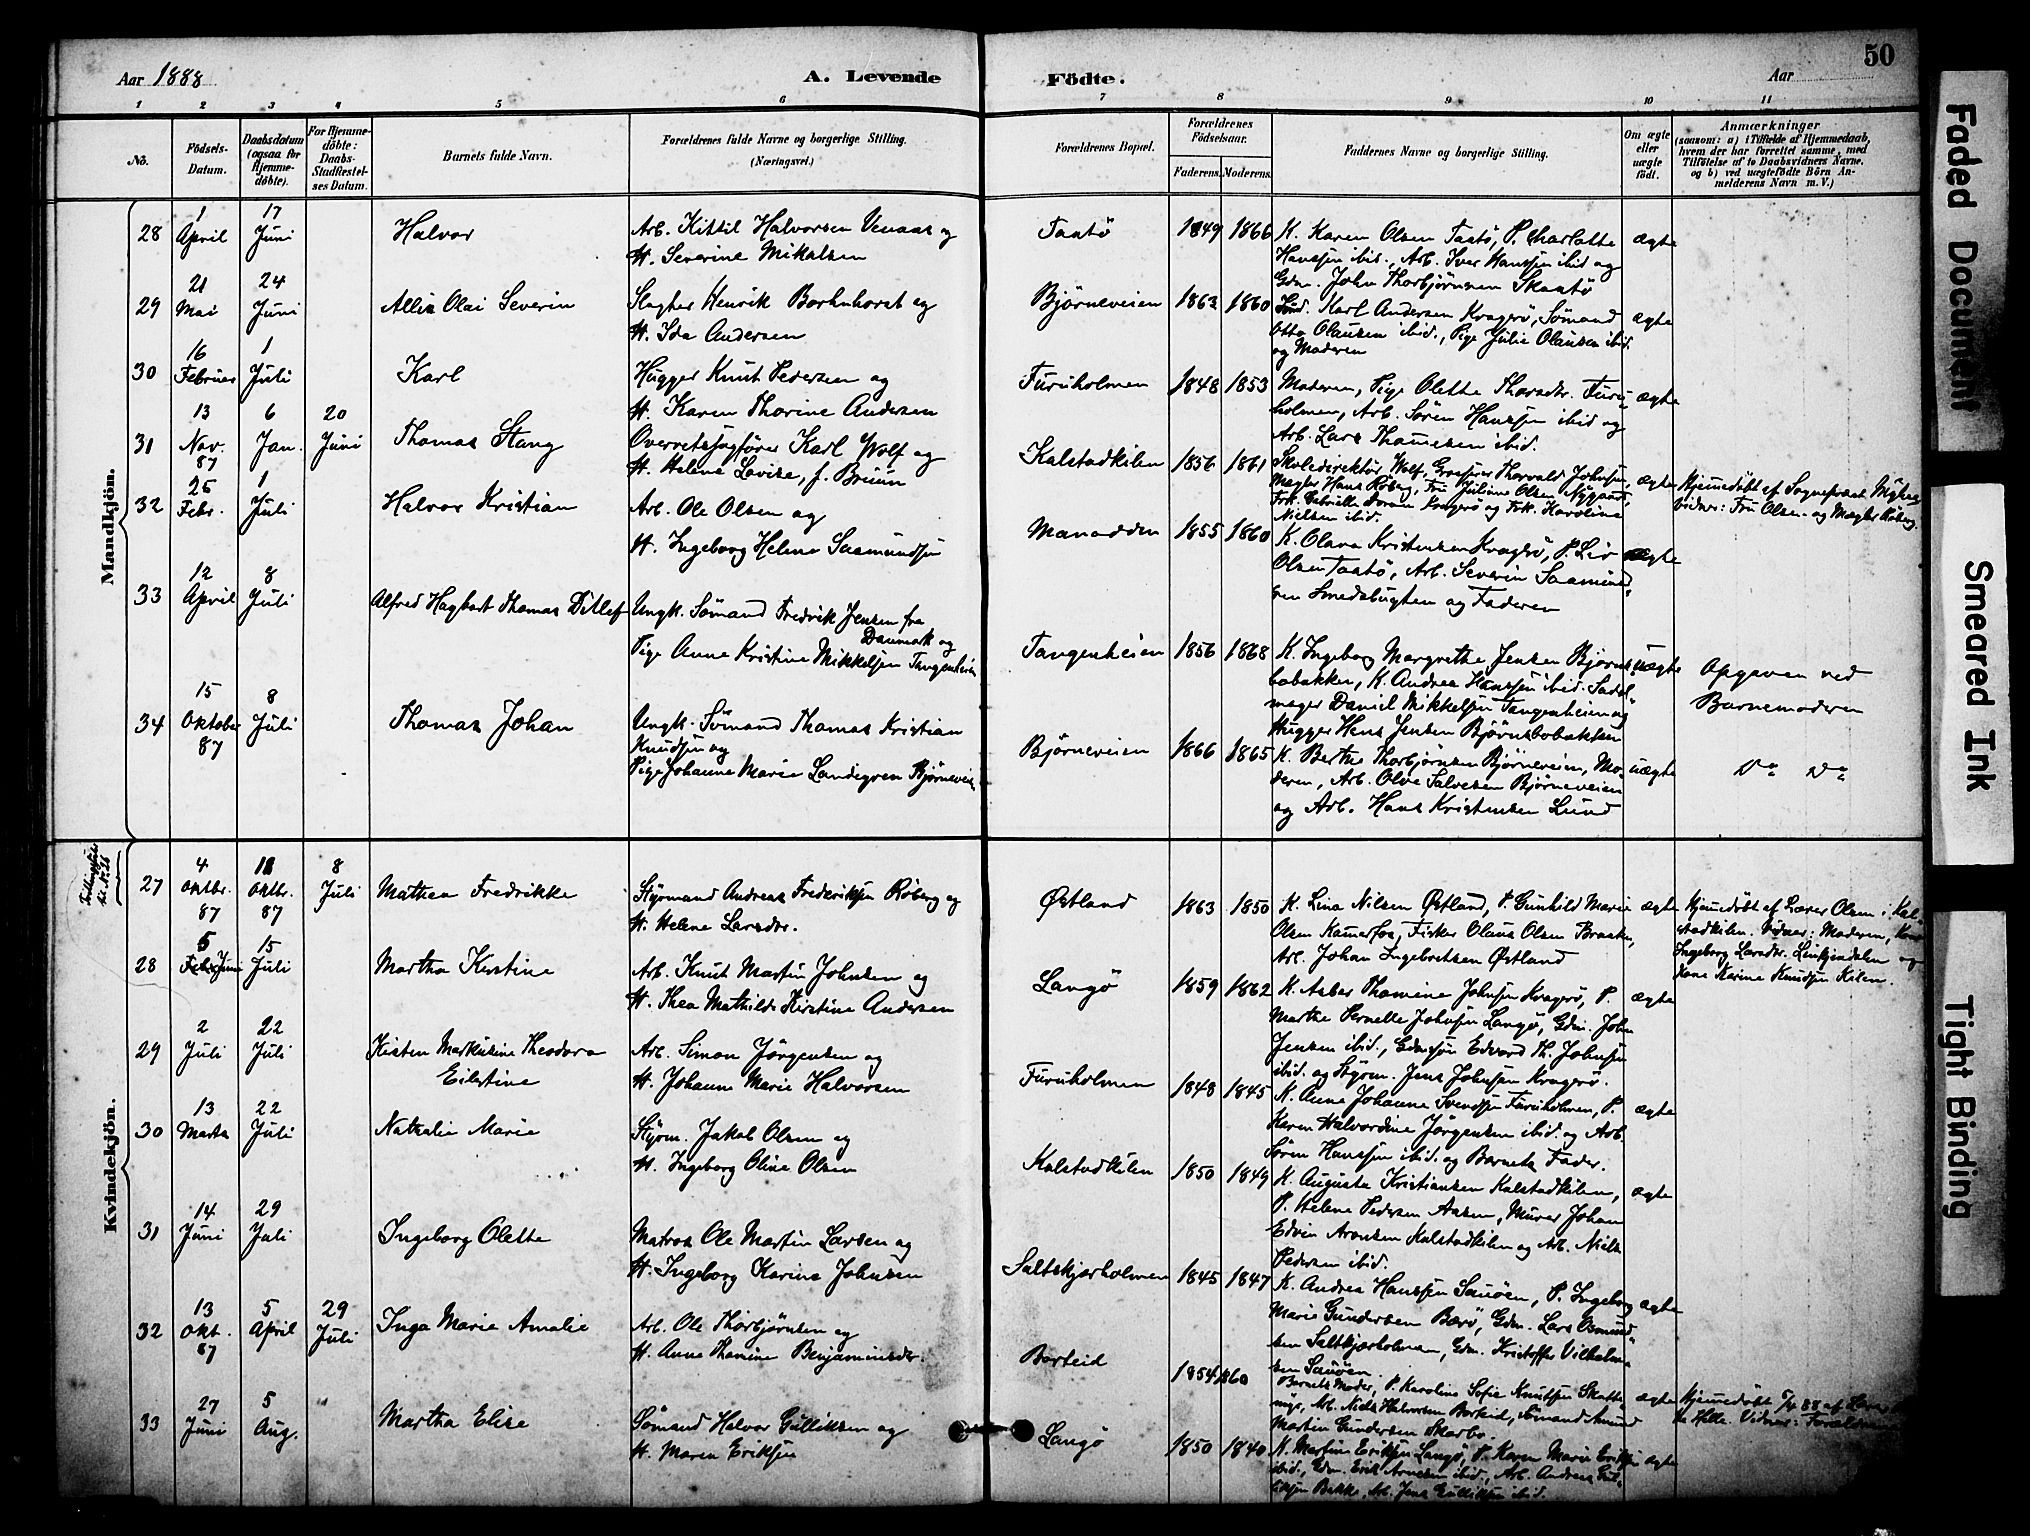 50
Aar 1888
A. Levende
Födte.
Aar
1 2 3 4 5 6 7 8 9 10 11
No.
Födsels-Datum.
Daabsdatum (ogsaa for Hjemme-døbte).
For Hjemme-døbte: Daabs-Stadfæstel-ses Datum.
Barnets fulde Navn.
Forældrenes fulde Navne og borgerlige Stilling.
(Næringsvei.)
Forældrenes Bopæl.
Forældrenes Fødselsaar.
Faderens. Moderens.
Faddernes Navne og borgerlige Stilling.
Om ægte eller uægte født.
Anmærkninger
(saasom: a) i Tilfælde af Hjemmedaab,
hvem der har forrettet samme, med
Tilføielse af to Daabsvidners Navne.
og b) ved uægtefødte Børn An-
melderens Navn m. V.)
Mandkjön.
28 1 April 17 Juni Halvor
Arb. Kittil Halvorsen Venaas og
H. Severine Mikalsen
Taatö 1849 1866
K. Karen Olsen Taatö, P. Charlotte
Hanssen ibid., Arb. Iver Hanssen ibid og
Gdm. John Thorbjörnsen Skaatö
ægte
29 21 Mai 24 Juni Olai Severin
Slagter Henrik og
H. Ida Andersen
Björneveien 1863 1860
Karl Andersen Kragerö, Sömand
Otto Olausen ibid., Pige Julie Olausen ibid.
og Moderen
ægte
30 16 Februar 1 Juli Karl
Hugger Knut Pedersen og
H. Karen Thorine Andersen
Furuholmen 1848 1853
Moderen, Pige Olette Thorsdr. Furu-
holmen, Arb. Sören Hanssen ibid og
Arb. Lars ibid.
ægte
31 13 Nov. 87 6 Jan. 20 Juni Thomas Stang
Overretssagförer Karl Wolf og
H. Helene Lovise, f. Bruun
Kalstadkilen 1856 1861
Skoledirektör Wolf, Grosserer Thorvald Johnsen,
Mægler Hans Röberg, Fru Juliane Olsen
Frk. Gabrielle Kragerö og Frk. Karoline
Nielsen ibid.
ægte
Hjemmedöbt af Sogneprest
Vidner: Fru Olsen og Mægler Röberg
32 25 Febr. 1 Juli Halvor Kristian
Arb. Ole Olsen og
H. Ingeborg Helene Saamundsen
1855 1860
K. Olava Kristensen Kragerö, P. Liv
Olsen Taatö, Arb. Severin Saamund-
sen Smedsbugten og Faderen
ægte
33 12 April 8 Juli Alfred Hagbart Thomas Ditlef
Ungk. Sömand Fredrik Jensen fra
Danmark og
Pige Anne Kristine Mikkelsen Tangenheien
Tangenheien 1856 1868
K. Ingeborg Margrethe Jensen Björns-
bobakken, K. Andrea Hanssen ibid. Sadel-
mager Daniel Mikkelsen Tangenheien og
Hugger Hans Jensen Björnsbobakken
uægte
Opgaven ved
Barnemoderen
34 15 Oktober 87 8 Juli Thomas Johan
Ungk. Sömand Thomas Kristian
Knudsen og
Pige Johanne Marie Landgren Björneveien
Björneveien 1866 1865
K. Berthe Thorbjörnsen Björneveien, Mo-
deren, Arb. Olve Salvesen Björneveien
og Arb. Hans Kristensen Lund
uægte
Do Do
Kvindekjön.
27 4 Oktbr. 87 11 Oktbr. 87 8 Juli Mathea Fredrikke
Styrmand Andreas Frederiksen Röberg og
H. Helene Larsdr.
Østland 1863 1850
K. Lina Nilsen Østland, P. Gunhild Marie
Olsen Kammerfos, Fisker Olaus Olsen Braaten,
Arb. Johan Ingebretsen Østland
ægte
Hjemmedöbt af Lærer Olsen i Kal-
stadkilen. Vidner: Moderen, Kone
Ingeborg Larsdr. og
Kone Karine Knudsen Kilen.
28 5 Juni 15 Juli Martha Kirstine
Arb. Knut Martin Johnsen og
H. Thea Mathilde Kirstine Andersen
Langö 1859 1862
K. Thomine Johnsen Kragerö, P.
Marthe Pernelle Johnsen Langö, Gdm. John
Jensen ibid., Gdmsön Edvard Th. Johnsen
ibid. og Styrm. Jens Johnsen Kragerö.
ægte
29 2 Juli 22 Juli Kisten Markusine Theodora
Eilertine
Arb. Simon Jörgensen og
H. Johanne Marie Halvorsen
Furuholmen 1848 1845
K. Anne Johanne Svendsen Furuholmen, P.
Karen Halvordine Jörgensen ibid. og Arb.
Sören Hanssen ibid. og Barnets Fader.
ægte
30 13 Marts 22 Juli Nathalie Marie
Styrm. Jakob Olsen og
H. Ingeborg Oline Olsen
Kalstadkilen 1850 1849
K. Augusta Kristiansen Kalstadkilen,
P. Helene Pedersen Aasen, Murer Johan
Edvin Aronsen Kalstadkilen og Arb. Niels
Pedersen ibid.
ægte
31 14 Juni 29 Juli Ingeborg Olette
Matros Ole Martin Larsen og
H. Ingeborg Karine Johnsen
Saltskjærholmen 1845 1847
K. Andrea Hanssen Sauöen, P. Ingeborg
Marie Gundersen Bærö, Gdm. Lars Osmund-
sen Saltskjærholmen, Gdm. Kristoffer Vilhelm-
sen Sauöen.
ægte
32 13 Okt. 87 5 April 29 Juli Inga Marie Amalie
Arb. Ole Thorbjörnsen og
H. Anne Thomine Benjaminsdr.
Barteid 1854 1860
Barnets Moder, P. Karoline Sofie Knutsen
Arb. Niels Halvorsen Barteid, Sömand
Martin Gundersen Skarbo.
ægte
Hjemmedöbt 5/4 88 af
Helle. Vidner: Forældrene
33 27 Juni 5 Aug. Martha Elise
Sömand Halvor Gulliksen og
H. Maren Eriksen
Langö 1850 1840
K. Martine Eriksen Langö, P. Karen Marie Eriksen
ibid., Gdm. Erik Arnesen ibid., Arb. Andreas Gul-
liksen Bakke, Arb. Jens Gulliksen ibid.
ægte
Faded Document
Smeared Ink
Tight Binding